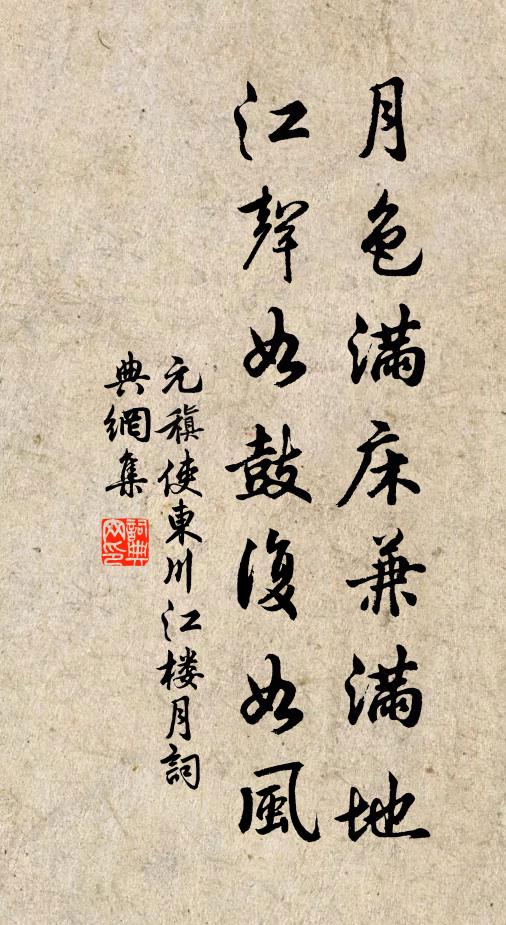 月色滿床兼滿地
江聲如鼓復如風
元稹使東川江楼月詞
典網集
詞典网印